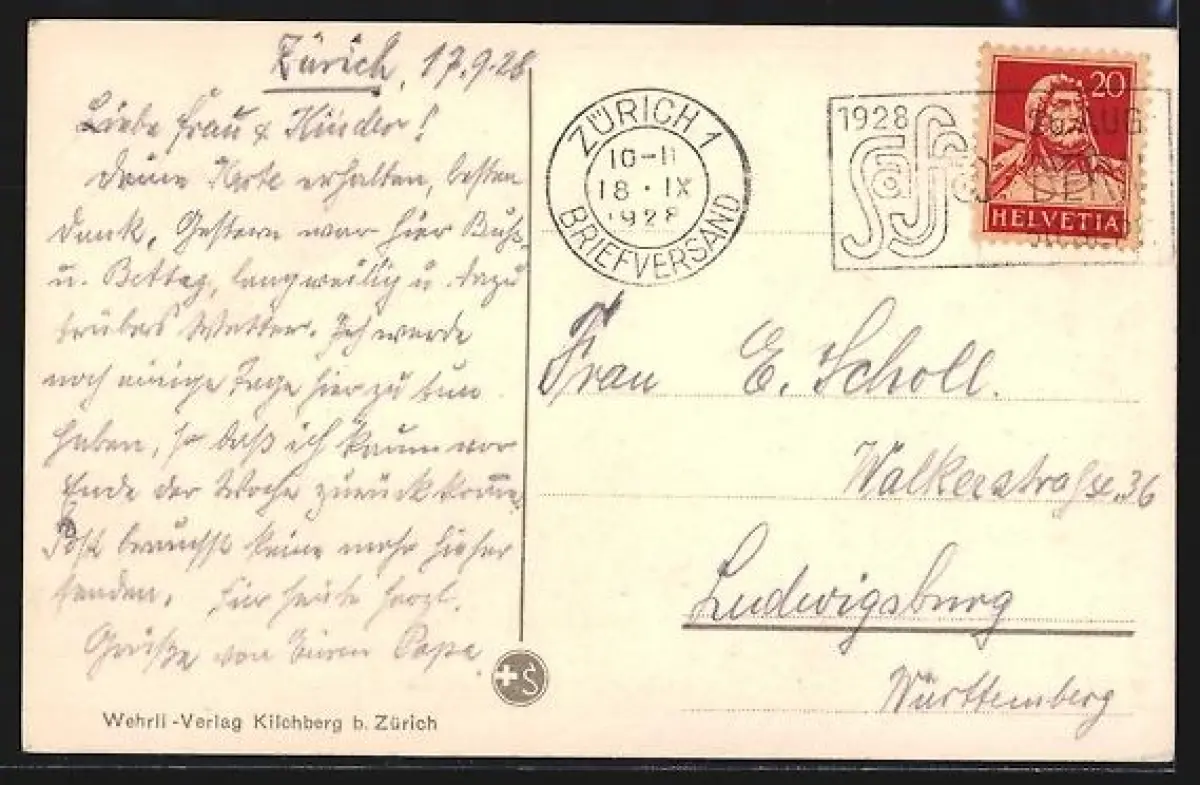 Zürich, 17.9.28
Liebe Frau & Kinder!
Deine Karte erhalten, besten
Dank. Gestern war hier Buß-
u. Bettag, langweilig u. dazu
trübes Wetter. Ich werde
noch einige Tage hier zu tun
haben, so daß ich kaum vor
Ende der Woche zurückkomme.
Post brauchst keine mehr hieher
senden. Für heute herzl.
Grüße von Eurem Papa.
Wehrli-Verlag Kilchberg b. Zürich
S
ZÜRICH 1
10-11
18·IX
1928
BRIEFVERSAND
1928 Saffa
26. AUG
BERN
20
HELVETIA
Frau E. Scholl.
Walkerstraße 36
Ludwigsburg
Württemberg